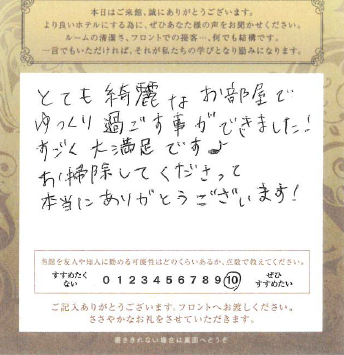 本日はご来館、誠にありがとうございます。
より良いホテルにする為に、ぜひあなた様の声をお聞かせください。
ルームの清潔さ、フロントでの接客…、何でも結構です。
一言でもいただければ、それが私たちの学びとなり励みになります。
とても綺麗なお部屋で
ゆっくり過ごす事ができました!
すごく大満足です♪
お掃除してくださって
本当にありがとうございます!
当館を友人や知人に勧める可能性はどのくらいあるか、点数で教えてください。
すすめたくない 0 1 2 3 4 5 6 7 8 9 10 ぜひすすめたい
ご記入ありがとうございます。フロントへお渡しください。
ささやかなお礼をさせていただきます。
書ききれない場合は裏面へどうぞ